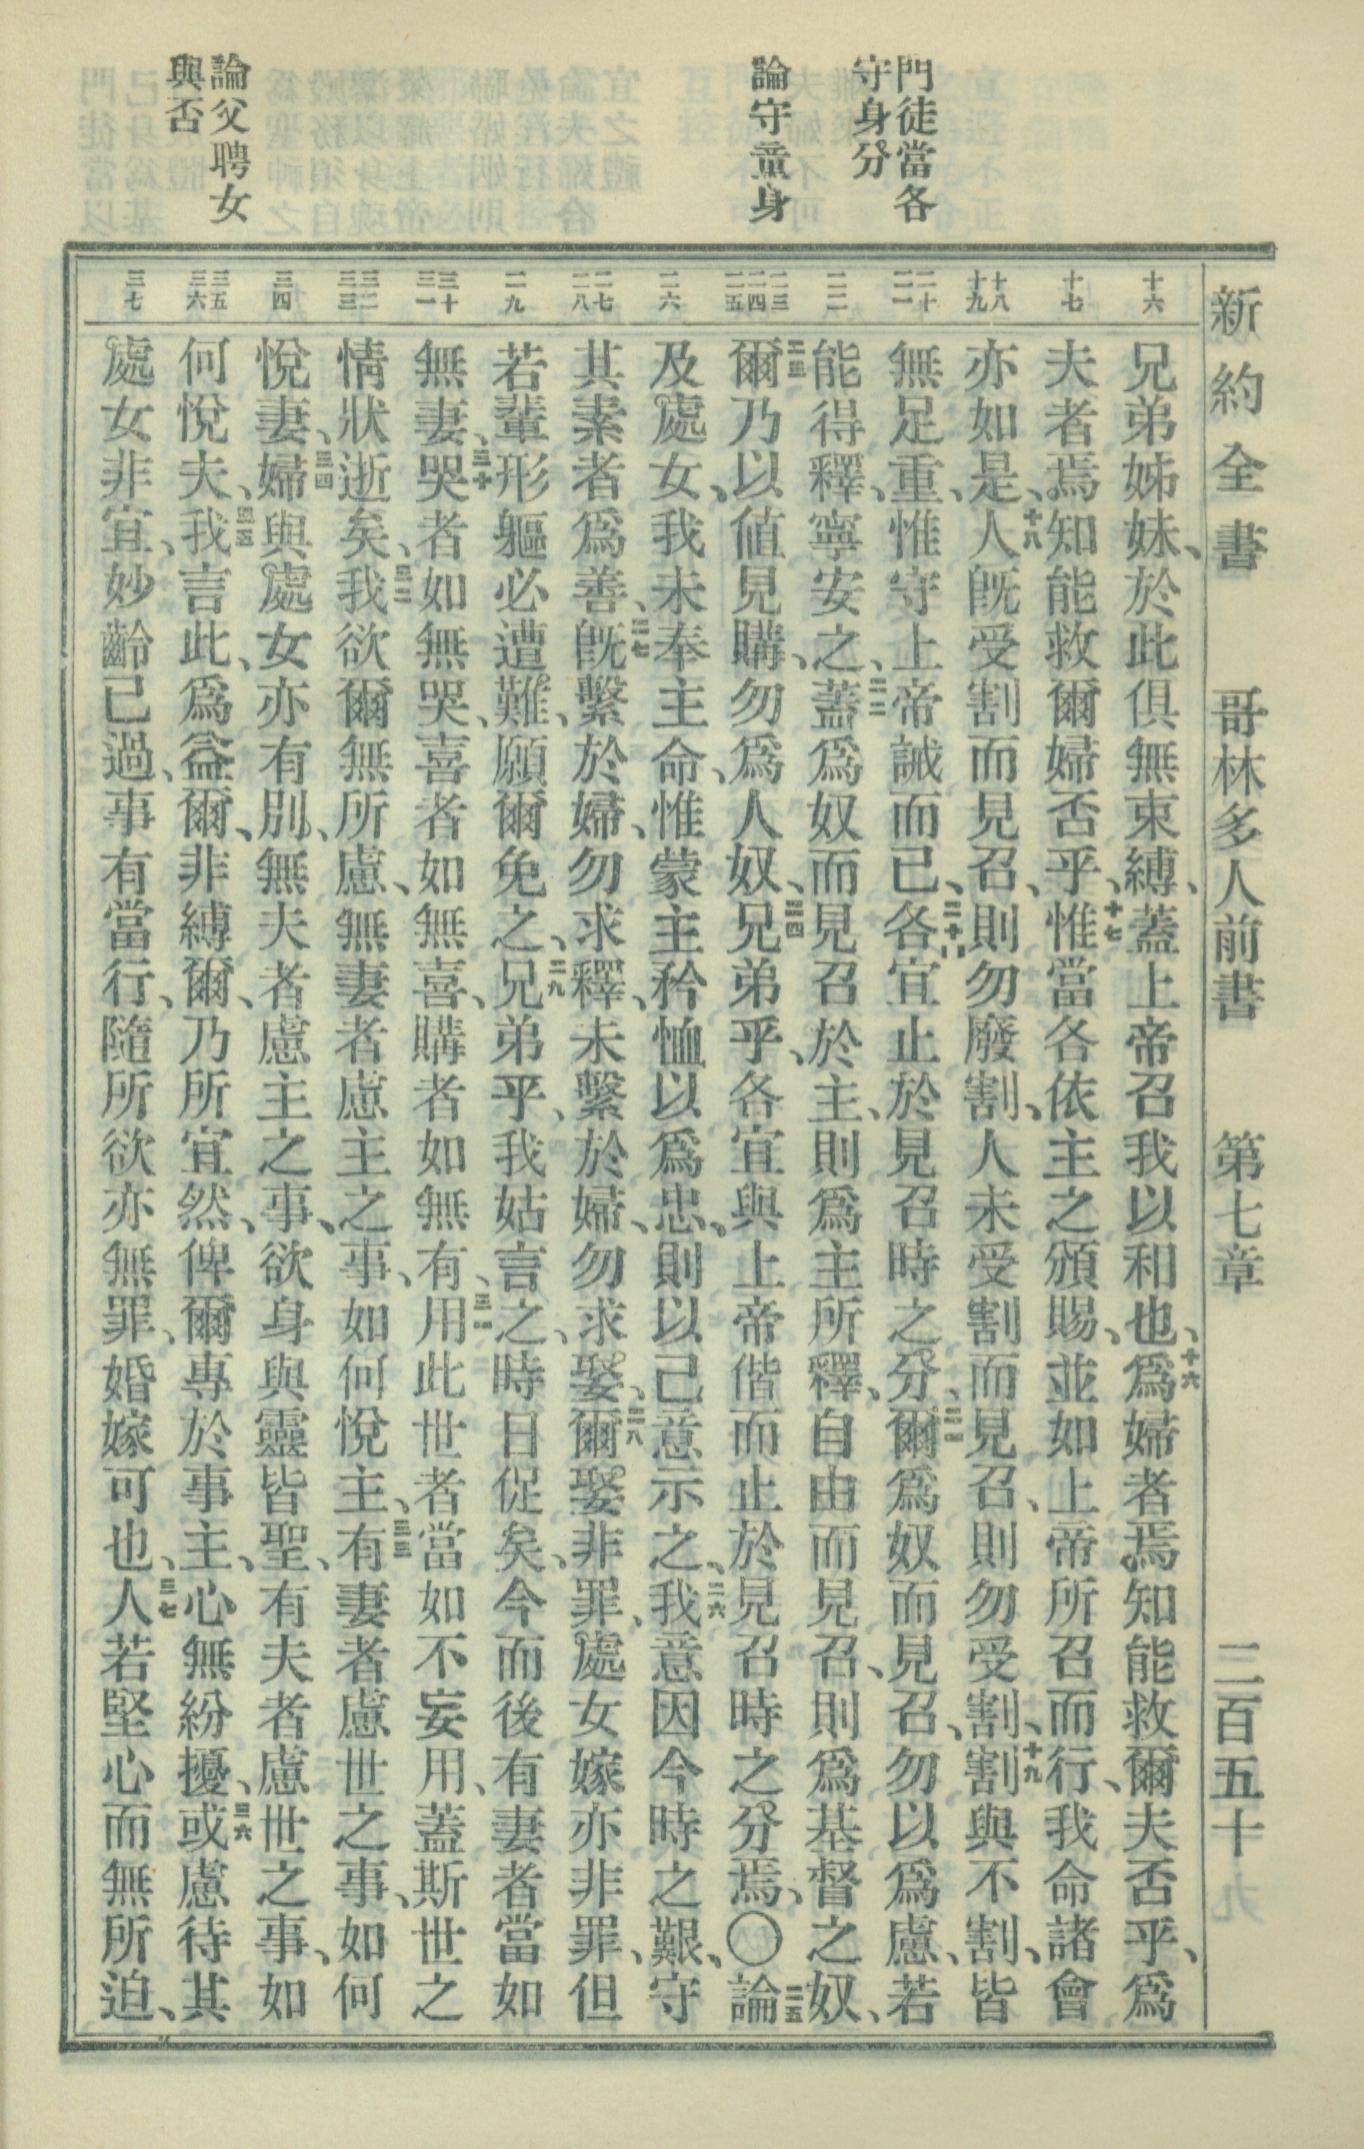 新約全書 哥林多人前書 第七章 二百五十九
門徒當各
守身分
論守童身
論父聘女
與否
十六
十七
十八 十九
二十 二一
二二
二三 二四 二五
二六
二七 二八
二九
三十 三一
三二 三三
三四
三五 三六
三七
兄弟姊妹、於此俱無束縛、蓋上帝召我以和也、十六爲婦者、焉知能救爾夫否乎、爲
夫者、焉知能救爾婦否乎、十七惟當各依主之頒賜、並如上帝所召而行、我命諸會
亦如是、十八人旣受割而見召、則勿廢割、人未受割而見召、則勿受割、十九割與不割、皆
無足重、惟守上帝誡而已、二十各宜止於見召時之分、二一爾爲奴而見召、勿以爲慮、若
能得釋、寧安之、二二蓋爲奴而見召於主、則爲主所釋、自由而見召、則爲基督之奴、
二三爾乃以値見購、勿爲人奴、二四兄弟乎、各宜與上帝偕而止於見召時之分焉、〇二五論
及處女、我未奉主命、惟蒙主矜恤以爲忠、則以己意示之、二六我意因今時之艱、守
其素者爲善、二七旣繫於婦、勿求釋、未繫於婦、勿求娶、二八爾娶非罪、處女嫁亦非罪、但
若輩形軀必遭難、願爾免之、二九兄弟乎、我姑言之、時日促矣、今而後有妻者當如
無妻、三十哭者如無哭、喜者如無喜、購者如無有、三一用此世者當如不妄用、蓋斯世之
情狀逝矣、三二我欲爾無所慮、無妻者慮主之事、如何悅主、三三有妻者慮世之事、如何
悅妻、三四婦與處女亦有別、無夫者慮主之事、欲身與靈皆聖、有夫者慮世之事、如
何悅夫、三五我言此、爲益爾、非縛爾、乃所宜然、俾爾專於事主、心無紛擾、三六或慮待其
處女非宜、妙齡已過、事有當行、隨所欲亦無罪、婚嫁可也、三七人若堅心而無所迫、